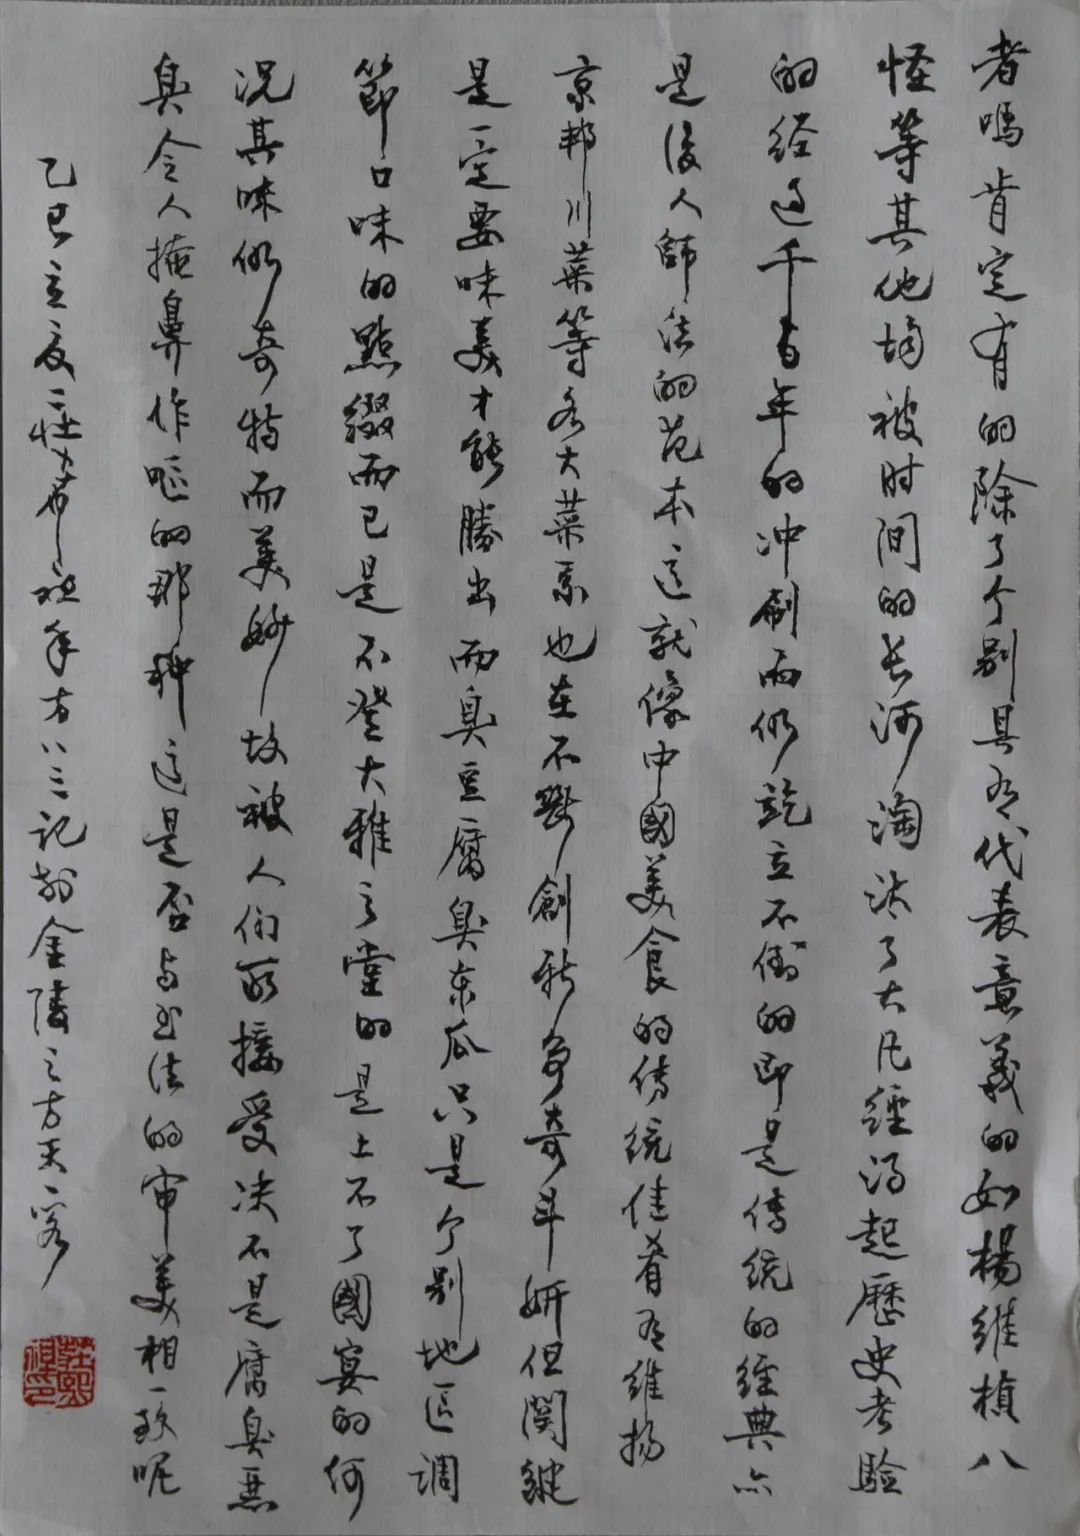 者嗎肯定有的除了个别具有代表意義的如楊維楨八
怪等其他均被时间的长河淘汰了大凡經得起歷史考驗
的经过千百年的冲刷而仍屹立不倒的即是傳统的經典亦
是後人師法的范本這就像中國美食的傳統佳肴有維扬
京邦川菜等各大菜系也在不斷創新争奇斗妍但関鍵
是一定要味美才能勝出而臭豆腐臭东瓜只是个别地区調
節口味的點缀而已是不登大雅之堂的是上不了國宴的何
况其味仍奇特而美妙故被人们所接受决不是腐臭惡
臭令人掩鼻作呕的那种這是否与书法的审美相一致呢
乙巳立夏莊希祖年方八三記於金陵之方天一客
莊熙祖印